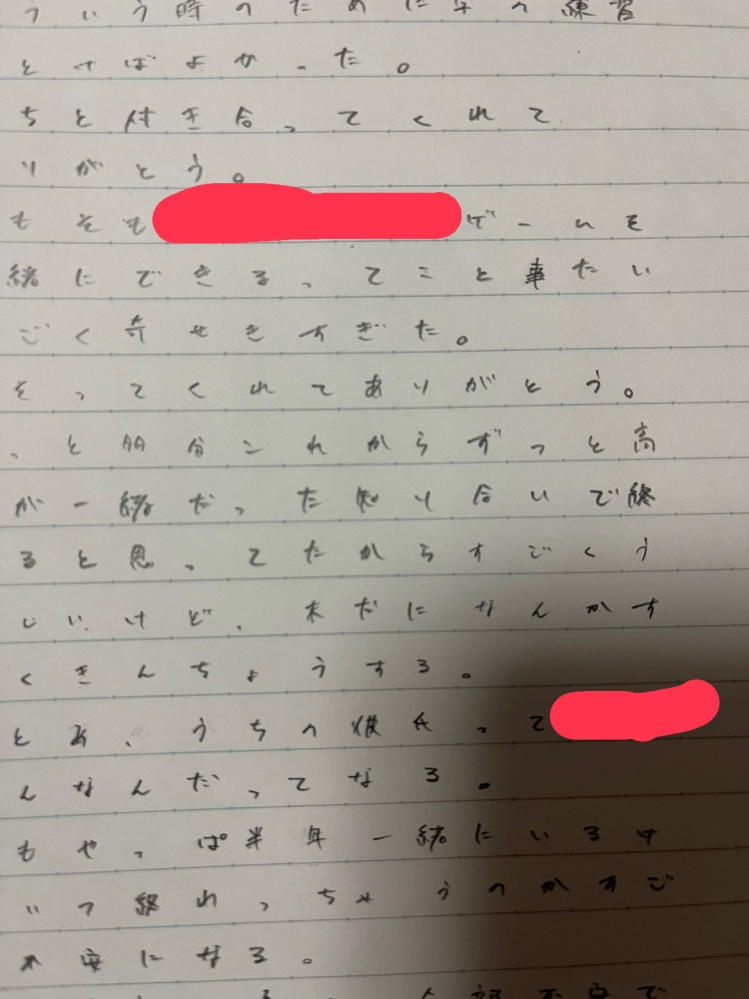 ういう時のために字の練習
とけばよかった。
ちと付き合ってくれて
りがとう。
もそも
げームを
緒にできるってこと事たい
ごく奇せきすぎた。
をってくれてありがとう。
っと多分これからずっと高
が一緒だった知り合いで終
ると思ってたからすごくう
しいけど、未だになんかす
くきんちょうする。
とあ、うちの彼氏って
んなんだってなる。
もやっぱ半年一緒にいるけ
いつ終わっちゃうのかすご
不安になる。